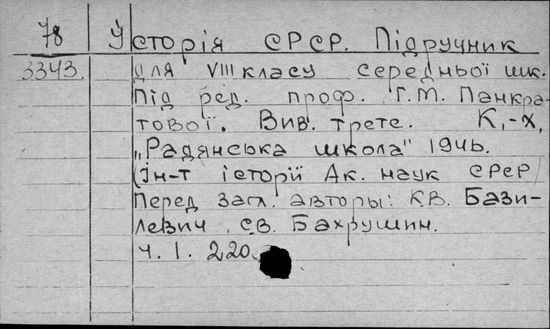 78 Історія СРСР. Підручник
3343. для VIII класу середньої шк.
Під ред. проф. Г.М. Панкра-
тової. Вив. третє. К,-Х,
„Радянська школа" 1946.
(Ін-т історії Ак. наук СРСР)
Перед загл. авторы: К.В. Бази-
левич, С.В. Бахрушин.
Ч. I. 220.